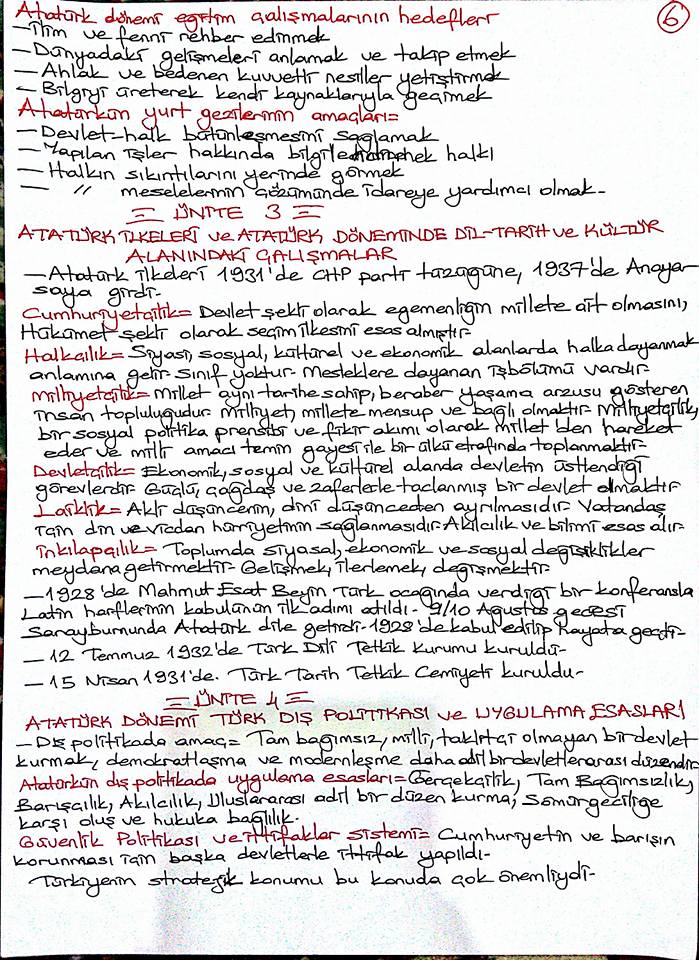 Atatürk dönemi eğitim çalışmalarının hedefleri
6
— İlim ve fenni rehber edinmek
— Dünyadaki gelişmeleri anlamak ve takip etmek
— Ahlak ve bedenen kuvvetli nesiller yetiştirmek
— Bilgiyi üreterek kendi kaynaklarıyla geçimek
Atatürkün yurt gezilerinin amaçları=
— Devlet-halk bütünleşmesini sağlamak
— Yapılan işler hakkında halkı
— Halkın sıkıntılarını yerinde görmek
— " meselelerinin çözümünde idareye yardımcı olmak-
Ξ ÜNİTE 3 Ξ
ATATÜRK İLKELERİ ve ATATÜRK DÖNEMİNDE DİL-TARİH ve KÜLTÜR
ALANINDAKİ ÇALIŞMALAR
— Atatürk ilkeleri 1931'de CHP parti tüzüğüne, 1937'de Anaya-
saya girdi-
Cumhuriyetçilik= Devlet şekli olarak egemenliğin millete ait olmasını,
Hükümet şekli olarak seçim ilkesini esas almıştır-
Halkçılık= Siyasi, sosyal, kültürel ve ekonomik alanlarda halka dayanmak
anlamına gelir- Sınıf yoktur- Mesleklere dayanan işbölümü vardır-
Milliyetçilik= Millet aynı tarihe sahip, beraber yaşama arzusu gösteren
insan topluluğudur- Milliyet, millete mensup ve bağlı olmaktır- Milliyetçilik,
bir sosyal politika prensibi ve fikir akımı olarak millet'den hareket
eder ve milli amacı temin gayesi ile bir ülkü etrafında toplanmaktır-
Devletçilik= Ekonomik, sosyal ve kültürel alanda devletin üstlendiği
görevlerdir- Güçlü, çağdaş ve zaferlerle taçlanmış bir devlet olmaktır-
Laiklik= Akli düşüncenin, dini düşünceden ayrılmasıdır- Vatandaş
için din ve vicdan hürriyetinin sağlanmasıdır- Akılcılık ve bilimi esas alır-
İnkılapçılık= Toplumda siyasal, ekonomik ve sosyal değişiklikler
meydana getirmektir- Gelişmek, ilerlemek, değişmektir-
— 1928'de Mahmut Esat Beyin Türk ocağında verdiği bir konferansla
Latin harflerinin kabulünün ilk adımı atıldı- 9/10 Ağustos gecesi
Sarayburnunda Atatürk dile getirdi- 1928'de kabul edilip hayata geçti-
— 12 Temmuz 1932'de Türk Dili Tetkik Kurumu kuruldu-
— 15 Nisan 1931'de. Türk Tarih Tetkik Cemiyeti kuruldu-
Ξ ÜNİTE 4 Ξ
ATATÜRK DÖNEMİ TÜRK DIŞ POLİTİKASI ve UYGULAMA ESASLARI
— Dış politikada amaç= Tam bağımsız, milli, taklitçi olmayan bir devlet
kurmak, demokratlaşma ve modernleşme daha adil bir devletlerarası düzendir-
Atatürkün dış politikada uygulama esasları= Gerçekçilik, Tam Bağımsızlık,
Barışçılık, Akılcılık, Uluslararası adil bir düzen kurma, Sömürgeciliğe
karşı oluş ve hukuka bağlılık-
Güvenlik Politikası ve ittifaklar sistemi= Cumhuriyetin ve barışın
korunması için başka devletlerle ittifak yapıldı-
Türkiyenin stratejik konumu bu konuda çok önemliydi-